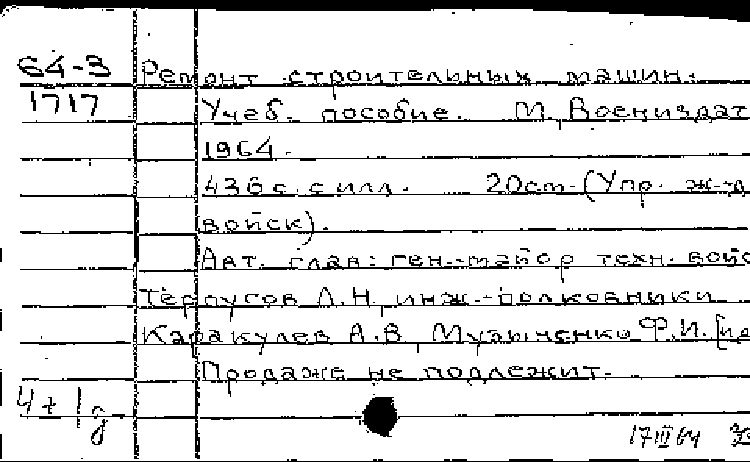 64-3 Ремонт строительных машин.
1717 Учеб. пособие. М., Воениздат
1964.
436 с. с илл. 20см. (Упр. ж-д
войск).
Авт. глав: ген.-майор техн. войс
Терпусов Л.Н, инж.-полковники
Каракулев А.В, Музыченко Ф.И. [и д
Продаже не подлежит.
4 + 1д
17 III 64